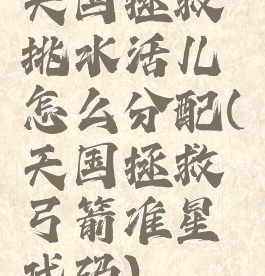 天国拯救
挑水活儿
怎么分配(
天国拯救
弓箭准星
代码)